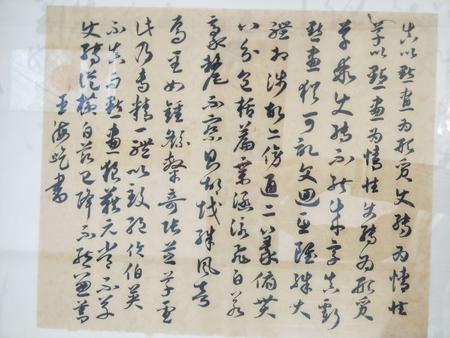 真以點畫為形質使轉為情性
草以點畫為情性使轉為形質
草乖使轉不能成字真虧
點畫猶可記文迴互雖殊大
體相涉故亦傍通二篆俯貫
八分包括篇章涵泳飛白若
豪釐不察則胡越殊風者
焉至如鍾繇隸奇張芝草聖
此乃專精一體以致絕倫伯英
不真而點畫狼藉元常不草
使轉縱橫自茲已降不能兼善
王海屹書